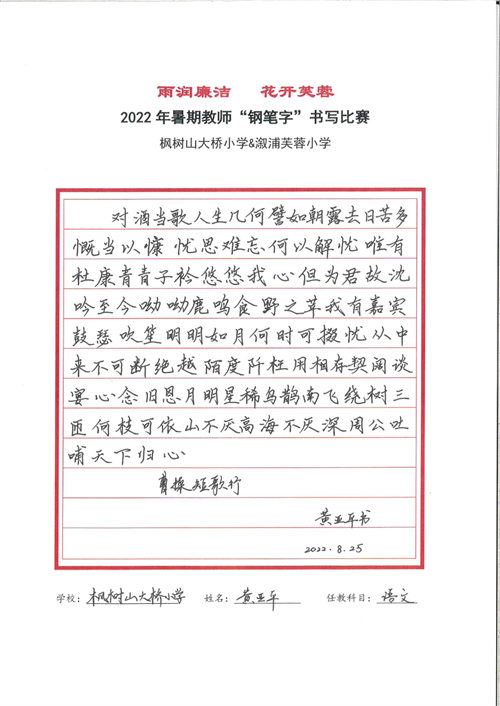 雨润廉洁 花开芙蓉
2022年暑期教师“钢笔字”书写比赛
枫树山大桥小学&溆浦芙蓉小学
对酒当歌人生几何譬如朝露去日苦多
慨当以慷忧思难忘何以解忧唯有
杜康青青子衿悠悠我心但为君故沈
吟至今呦呦鹿鸣食野之苹我有嘉宾
鼓瑟吹笙明明如月何时可掇忧从中
来不可断绝越陌度阡枉用相存契阔谈
宴心念旧恩月明星稀乌鹊南飞绕树三
匝何枝可依山不厌高海不厌深周公吐
哺天下归心
曹操短歌行
黄亚军书
2022.8.25
学校:枫树山大桥小学 姓名:黄亚军 任教科目:语文